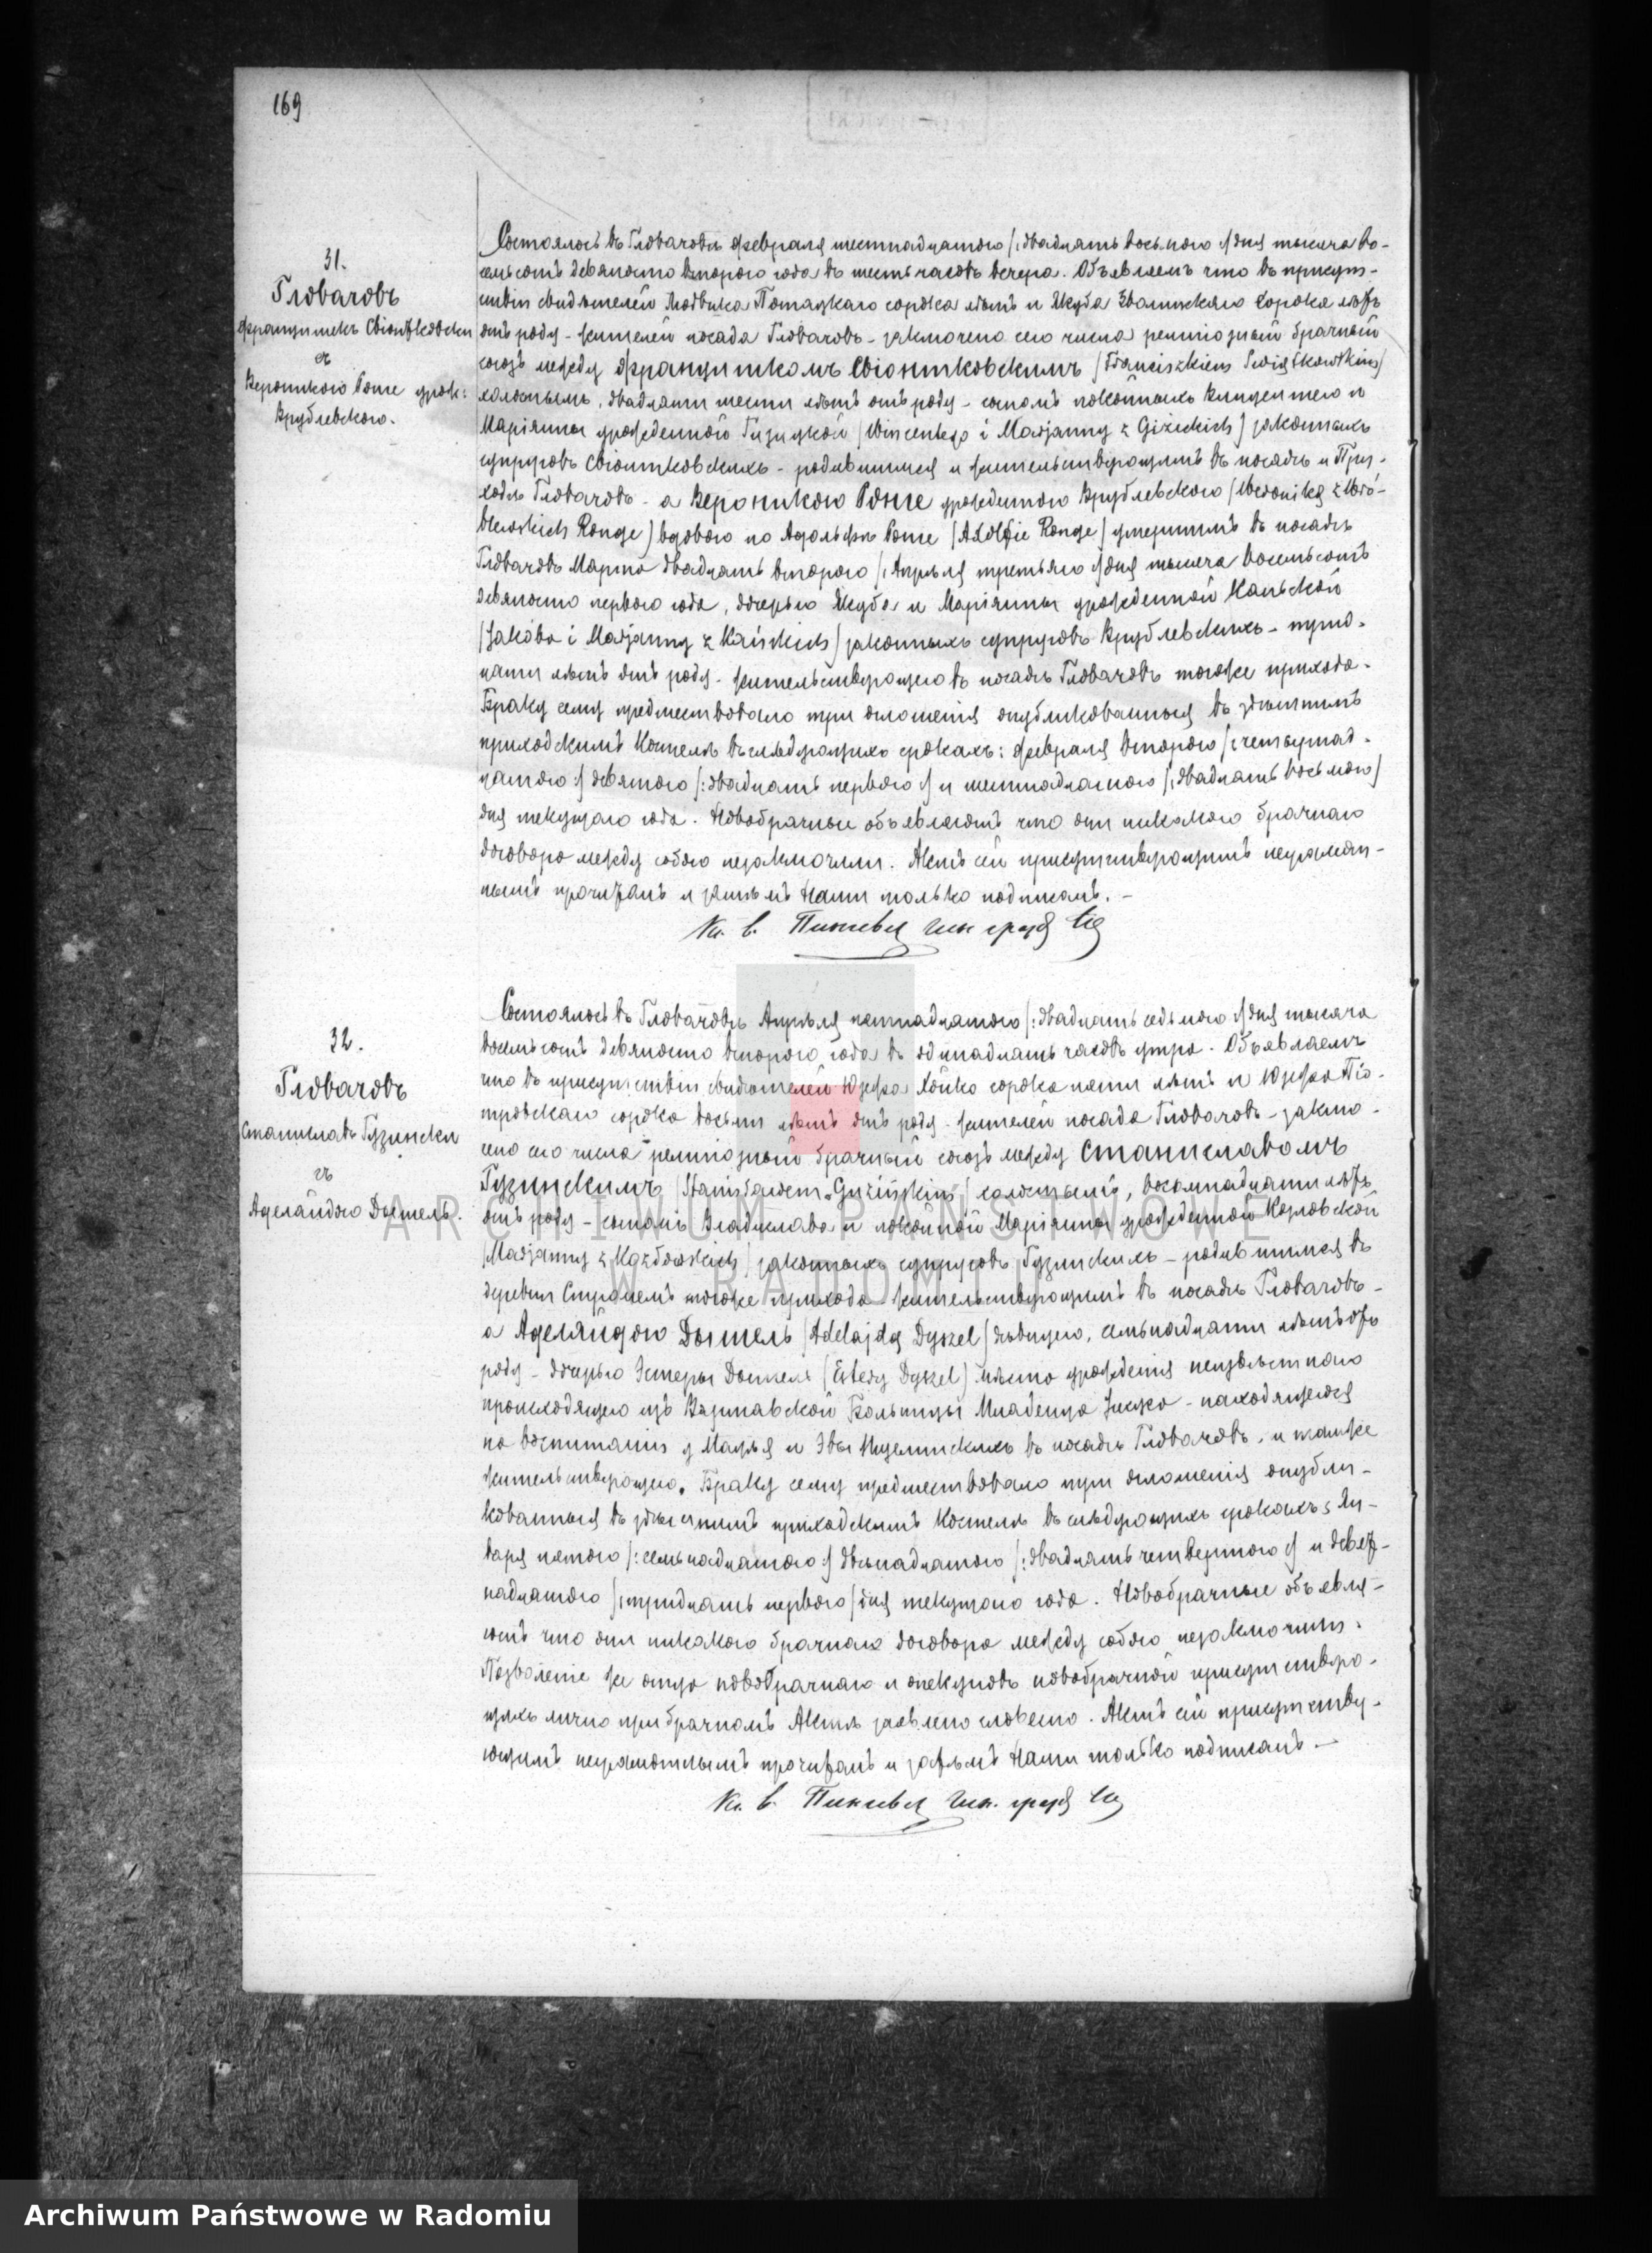 169
31.
Гловачовъ
Францишекъ Свіонтковски
съ
Вероникою Ронге урож:
Врублевскою.
Состоялось въ Гловачовѣ Февраля шестнадцатаго /:двадцать восьмого:/ дня тысяча во-
семьсотъ девяносто второго года въ шесть часовъ вечера. Объявляемъ что въ присут-
ствіи свидѣтелей Людвика сорока лѣтъ и Якуба сорока лѣтъ
отъ роду - жителей посада Гловачовъ - заключено сего числа религіозный брачный
союзъ между Францишкомъ Свіонтковскимъ /Franciszkiem Swiątkowskim/
холостымъ, двадцати шести лѣтъ отъ роду - сыномъ покойныхъ Винцентего и
Маріянны урожденной Гизицкой /Wincentego i Marjanny z Giżickich/ законныхъ
супруговъ Свіонтковскихъ - родившимся и жительствующимъ въ посадѣ и При-
ходѣ Гловачовъ - а Вероникою Ронге урожденною Врублевскою /Weroniką z Wró-
blewskich Ronge/ вдовою по Адольфѣ Ронге /Adolfie Ronge/ умершимъ въ посадѣ
Гловачовъ Марта двадцать второго /:Апрѣля третьяго:/ дня тысяча восемьсотъ
девяносто первого года, дочерью Якуба и Маріянны урожденной Каньской
/Jakóba i Marjanny z Kańskich/ законныхъ супруговъ Врублевскихъ -
цати лѣтъ отъ роду - жительствующею въ посадѣ Гловачовъ тогоже прихода.
Браку сему предшествовало три оглашенія опубликованныя въ здѣшнимъ
приходскимъ Костелѣ въ слѣдующихъ срокахъ: Февраля второго /:четырнад-
цатого:/ девятого /:двадцать первого:/ и шестнадцатого /:двадцать восьмого/
дня текущаго года. Новобрачные объявляютъ что они никакого брачнаго
договора между собою незаключили. Актъ сей присутствующимъ неграмот-
нымъ прочитанъ и затѣмъ Нами только подписанъ. -
32.
Гловачовъ
Станиславъ Гузински
съ
Аделайдою Дышель.
Состоялось въ Гловачовѣ Апрѣля пятнадцатого /:двадцать седьмого:/ дня тысяча
восемьсотъ девяносто второго года въ одинадцать часовъ утра. Объявляемъ
что въ присутствіи свидѣтелей Юзефа сорока пяти лѣтъ и Юзефа Піо-
тровскаго сорока восьми лѣтъ отъ роду - жителей посада Гловачовъ - заклю-
чено сего числа религіозный брачный союзъ между Станиславомъ
Гузинскимъ /Stanisławem Guzińskim/ холостымъ, восемнадцати лѣтъ
отъ роду - сыномъ Владислава и покойной Маріянны урожденной Козловской
/Marjanny z Kozłowskich/ законныхъ супруговъ Гузинскихъ - родившимся въ
деревни тогоже прихода жительствующимъ въ посадѣ Гловачовъ -
а Аделяйдою Дышель /Adelajdą Dyszel/ дѣвицею, семьнадцати лѣтъ отъ
роду - дочерью Эстеры Дышель /Estery Dyszel/ мѣсто урожденія неизвѣстного
происходящею изъ Варшавской Больницы Младенца Іисуса - находящеюся
на воспитаніи у и Эвы въ посадѣ Гловачовъ, и также
жительствующею. Браку сему предшествовало три оглашенія опубли-
кованныя въ здѣшнимъ приходскимъ Костелѣ въ слѣдующихъ срокахъ: Ян-
варя пятого /:семьнадцатого:/ двѣнадцатого /:двадцать четвертого:/ и девят-
надцатого /:тридцать первого/ дня текущого года. Новобрачные объявля-
ютъ что они никакого брачнаго договора между собою незаключили.
Позволеніе же отца новобрачнаго и опекуновъ новобрачной присутствую-
щихъ лично при брачномъ Актѣ заявлено словесно. Актъ сей присутству-
ющимъ неграмотнымъ прочитанъ и затѣмъ Нами только подписанъ -
ARCHIWUM PAŃSTWOWE
W RADOMIU
Archiwum Państwowe w Radomiu